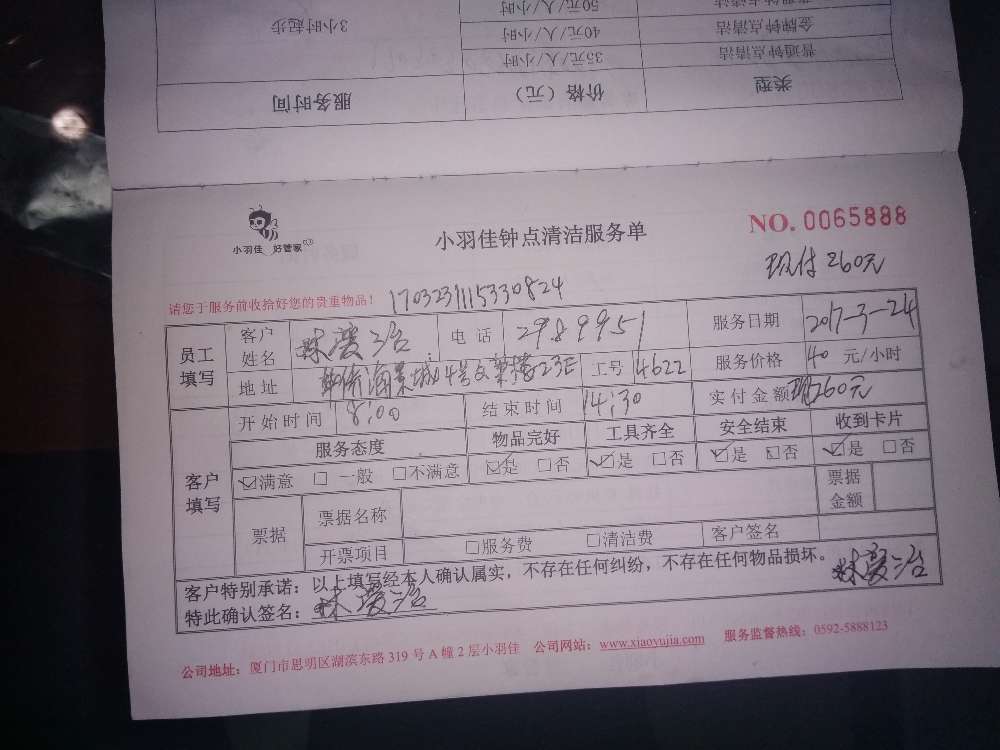 3小时起步
50元/人/小时
金牌钟点清洁 40元/人/小时
普通钟点清洁 35元/人/小时
类型 价格（元） 服务时间
小羽佳 好管家
小羽佳钟点清洁服务单
NO. 0065888
现付260元
请您于服务前收拾好您的贵重物品！ 170323111533 0824
员工填写 客户姓名 林爱治 电话 2989951 服务日期 2017-3-24
地址 华侨海景城4号文莱楼23E 工号 4622 服务价格 40 元/小时
客户填写 开始时间 8:00 结束时间 14:30 实付金额 现260元
服务态度 物品完好 工具齐全 安全结束 收到卡片
☑满意 □一般 □不满意 ☑是 □否 ☑是 □否 ☑是 □否 ☑是 □否
票据 票据名称 票据金额
开票项目 □服务费 □清洁费 客户签名
客户特别承诺：以上填写经本人确认属实，不存在任何纠纷，不存在任何物品损坏。
特此确认签名：林爱治 林爱治
公司地址：厦门市思明区湖滨东路319号A幢2层小羽佳 公司网站：www.xiaoyujia.com 服务监督热线：0592-5888123